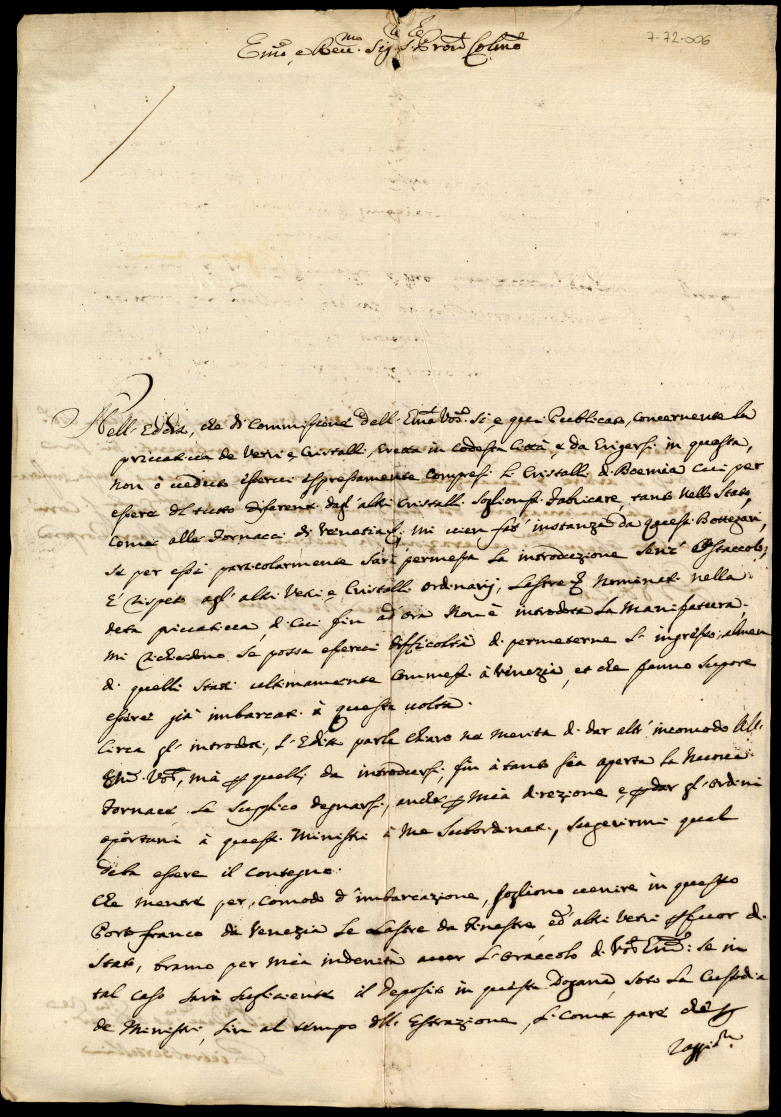 7-72-006
Emo, e Revmo Sig. e Pron Colmo
Nell'Editto, che di Commissione dell'Ema Vos. si e quai Publicato, concernente la
privatiua de Vetri e Cristalli, eretta in codesta Città, e da Erigersi in questa,
non ò ueduto esserui espressamente Compresi li Cristalli di Boemia cui per
essere del tutto diferenti dagl'altri Cristalli sogliansi fabricare, tanto nello Stato,
come alle Fornacci di Venetia, mi uien fat' instanza da questi Bottegari,
se per essi particolarmente sarà permessa la introduzione senz' Ostaccolo;
E rispeto agl'altri Vetri e Cristalli ordinarij, Lastre nominati nella
deta priuatiua, di cui fin ad ora non è introdota la manifatura,
mi richiedono se possa esserui difficoltà di permeterne l'ingresso, almen
di quelli stati ultimamente Commessi à Venezia, et che fanno supore
essere già imbarcati à questa uolta.
Circa gl'introdoti, l'Editto parla chiaro ne merita di dar altr'incomodo all'
Emª Vos, mà p quelli da introdursi, fin à tanto sia aperta la Nuoua
Fornace. La suplico degnarsi, anche p mia direzione e p dar gl'ordini
oportuni à questi Ministri à me subordinati, sugerirmi qual
deba essere il contegno.
Che mentre per comodo d'imbarcazione, sogliono uenire in questo
Porto franco da Venezia le Lastre da Finestre, ed altri Vetri p fuor di
Stato, bramo per mia indenità auer l'oraccolo di Vos Emª: se in
tal caso sarà suficiente il deposito in questa Dogana, soto la Custodia
de Ministri, sin al tempo dell'Estrazione, si come pare che p